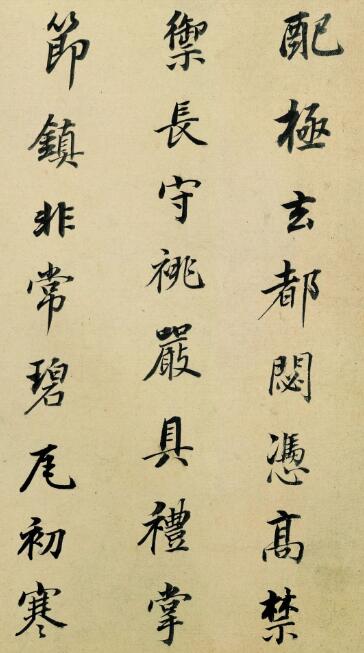 配極玄都閟憑髙禁
禦長守祧嚴具禮掌
節鎮非常碧瓦初寒